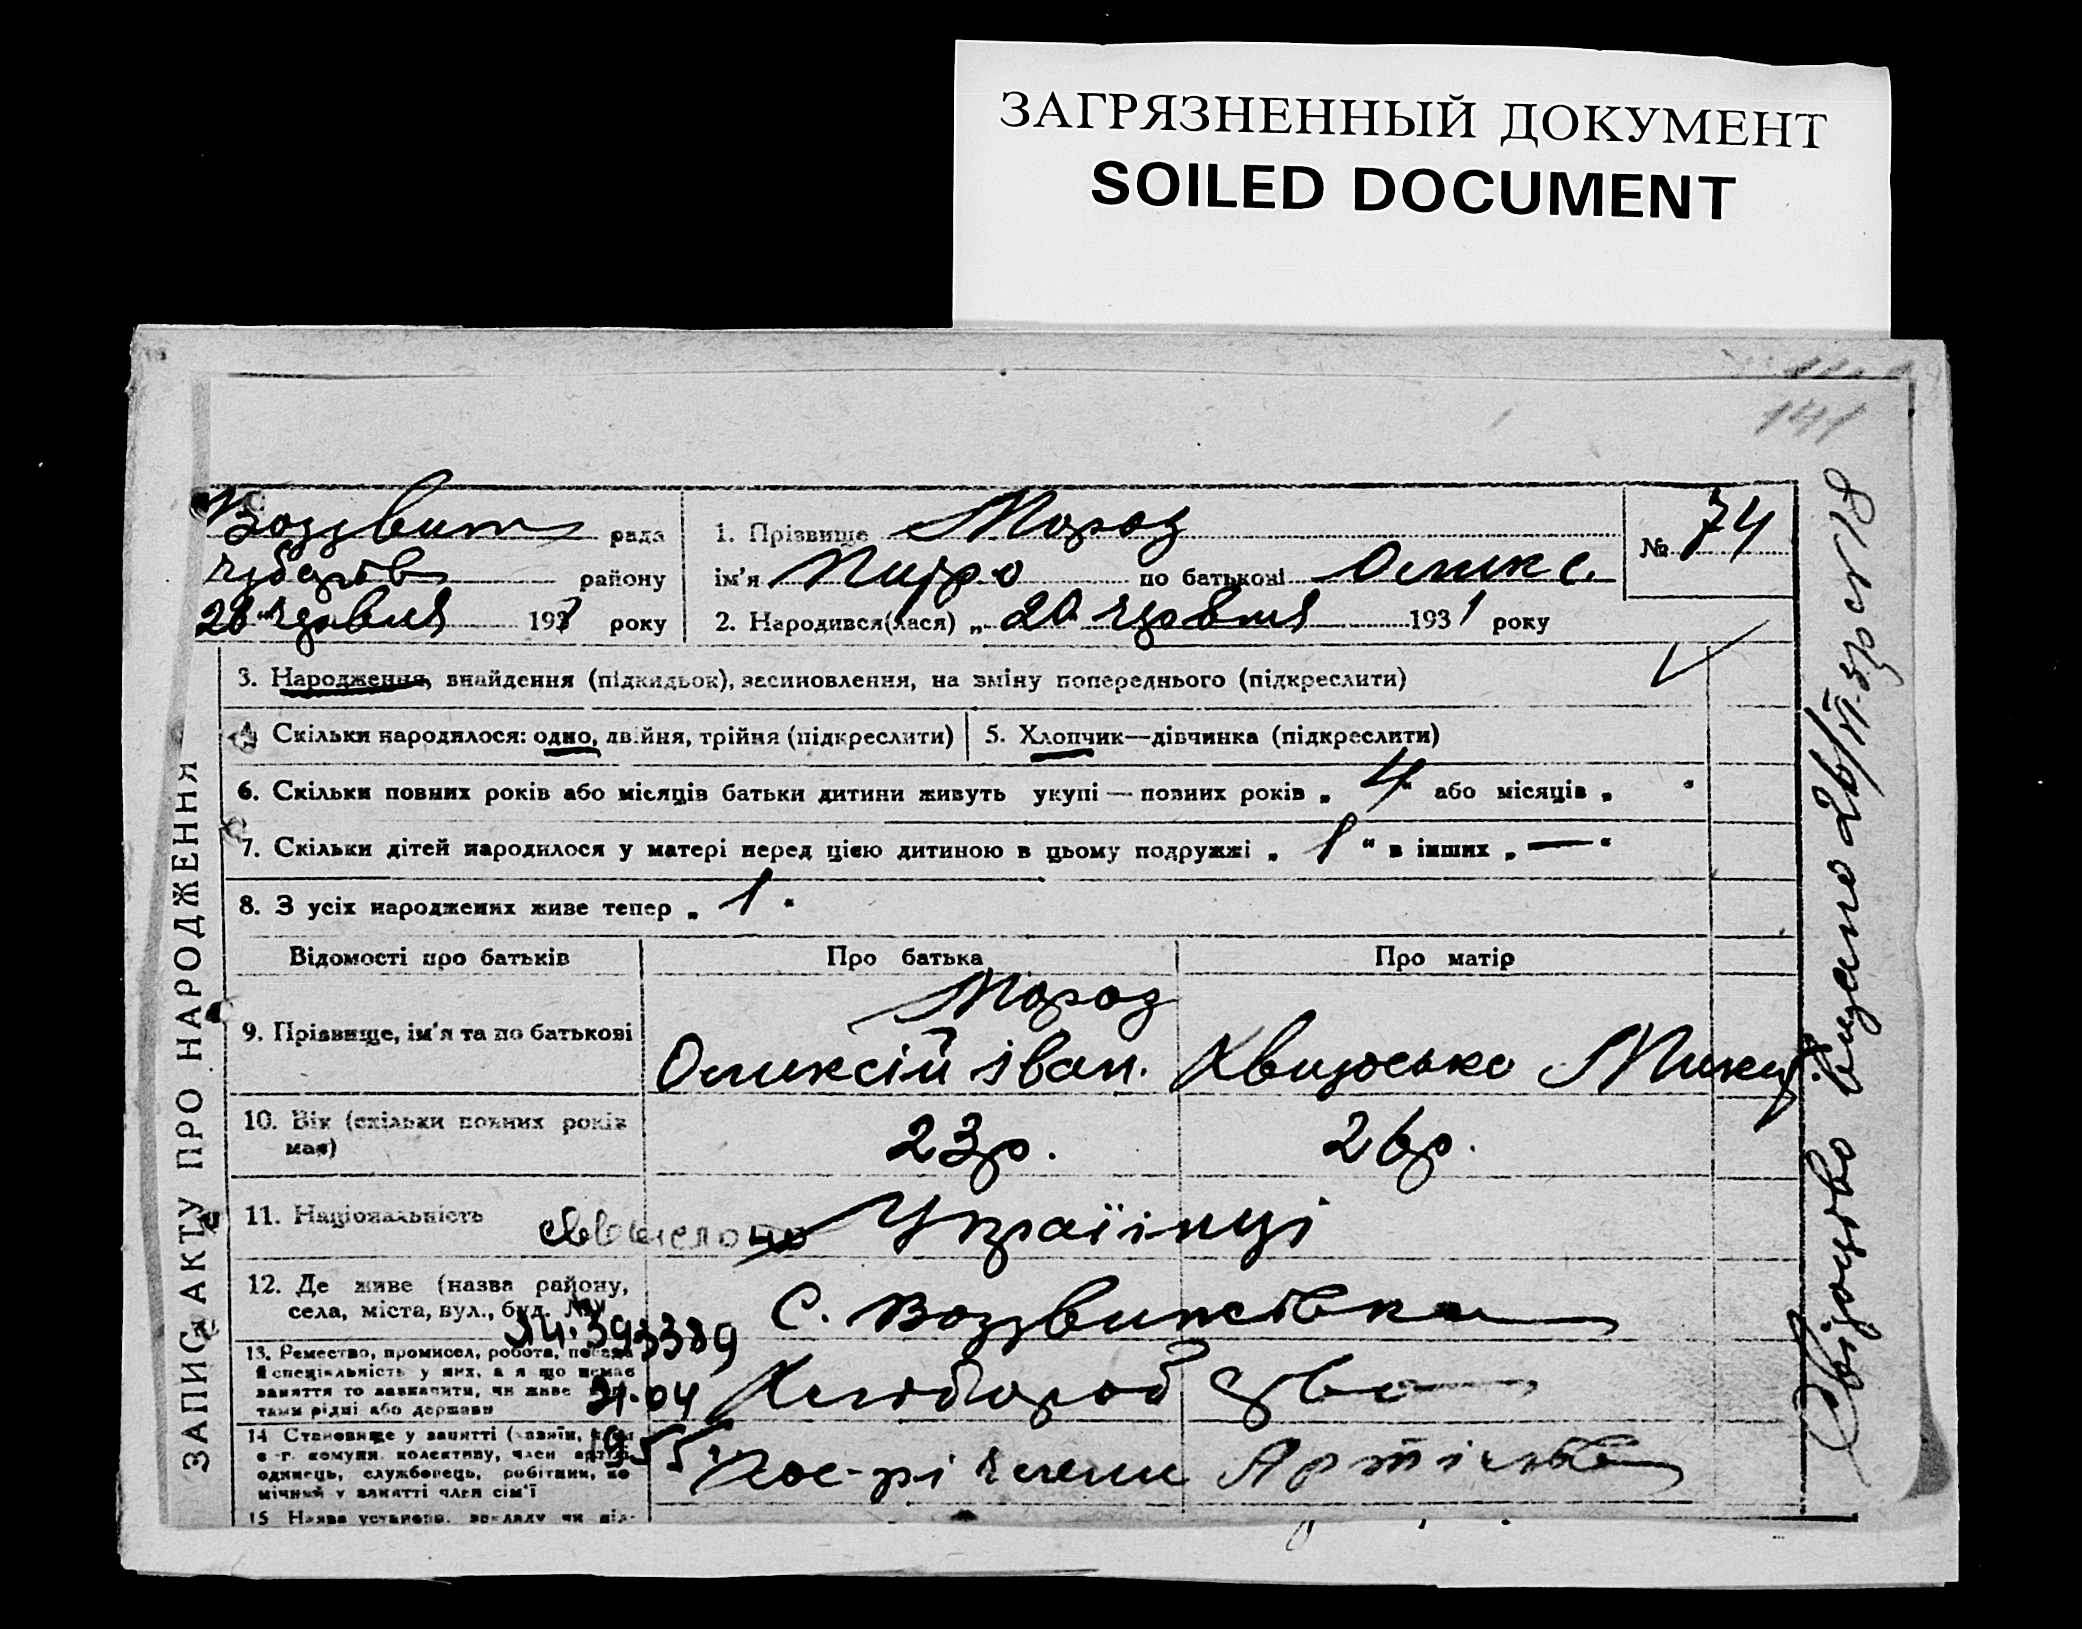 ЗАГРЯЗНЕННЫЙ ДОКУМЕНТ
SOILED DOCUMENT
141
ЗАПИС АКТУ ПРО НАРОДЖЕННЯ
рада
району
28 червня 1931 року
1. Прізвище Мороз
ім'я Питро по батькові Оликс.
2. Народився(лася) „ 20 червня 1931 року
№ 74
3. Народження, знайдення (підкидьок), засиновлення, на зміну попереднього (підкреслити)
4. Скільки народилося: одно, двійня, трійня (підкреслити)
5. Хлопчик—дівчинка (підкреслити)
6. Скільки повних років або місяців батьки дитини живуть укупі — повних років „ 4 “ або місяців „ “
7. Скільки дітей народилося у матері перед цією дитиною в цьому подружжі „ 1 “ в інших „ — “
8. З усіх народжених живе тепер „ 1 “
Відомості про батьків
Про батька
Про матір
9. Прізвище, ім'я та по батькові
Мороз
Оликсій Іван.
10. Вік (скільки повних років має)
23р.
26р.
11. Національність
Українці
12. Де живе (назва району,
села, міста, вул., буд. №
с. Воздвиженівка
393389
13. Ремество, промисел, робота, посада
й спеціяльність у них, а якщо немає
заняття то зазначити, чи живе
тами рідні або держави
21.04
1955
Хліборобство
14 Становище у занятті (хазяїн, член
с.-г. комуни, колективу, член артілі,
одинець, службовець, робітник, по
мічний у занятті член сім'ї
15 Назва установи, закладу чи під-
Свідоцтво видано 26/VI-31р